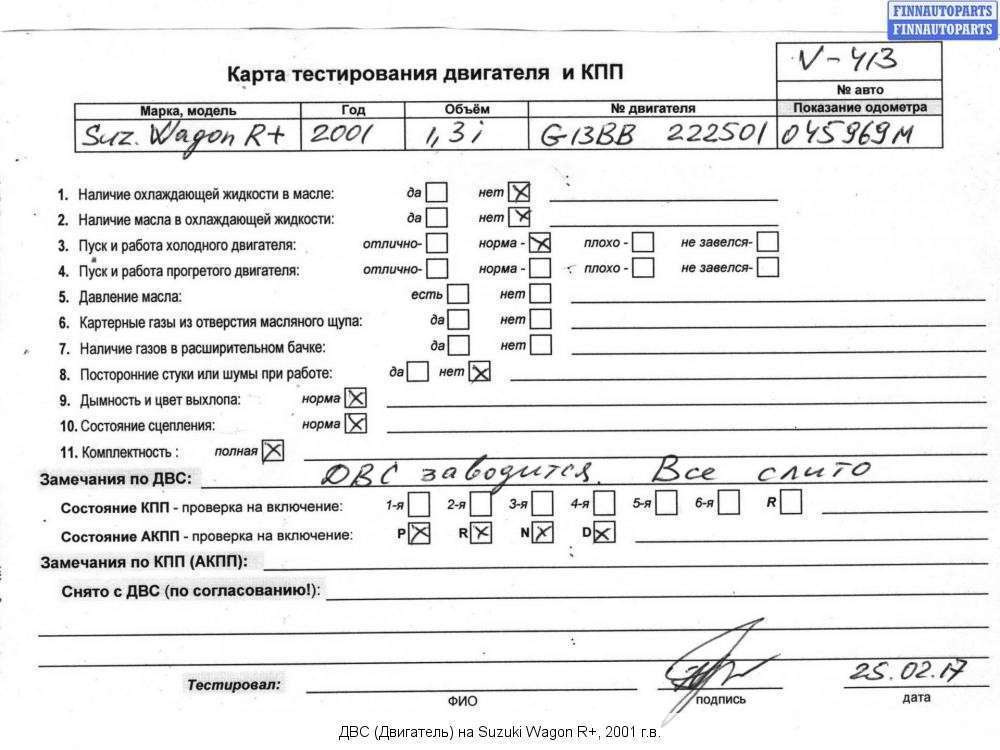 FINNAUTOPARTS
FINNAUTOPARTS
V-413
Карта тестирования двигателя и КПП
№ авто
Марка, модель Год Объём № двигателя Показание одометра
Suz. Wagon R+ 2001 1,3i G13BB 222501 045969М
1. Наличие охлаждающей жидкости в масле: да нет
2. Наличие масла в охлаждающей жидкости: да нет
3. Пуск и работа холодного двигателя: отлично- норма - плохо - не завелся-
4. Пуск и работа прогретого двигателя: отлично- норма - плохо - не завелся-
5. Давление масла: есть нет
6. Картерные газы из отверстия масляного щупа: да нет
7. Наличие газов в расширительном бачке: да нет
8. Посторонние стуки или шумы при работе: да нет
9. Дымность и цвет выхлопа: норма
10. Состояние сцепления: норма
11. Комплектность : полная
Замечания по ДВС: ДВС заводится. Все слито
Состояние КПП - проверка на включение: 1-я 2-я 3-я 4-я 5-я 6-я R
Состояние АКПП - проверка на включение: P R N D
Замечания по КПП (АКПП):
Снято с ДВС (по согласованию!):
Тестировал: 25.02.17
ФИО подпись дата
ДВС (Двигатель) на Suzuki Wagon R+, 2001 г.в.